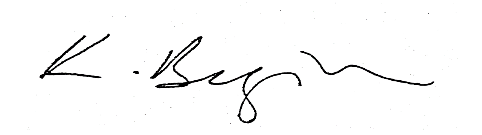 K. Begin